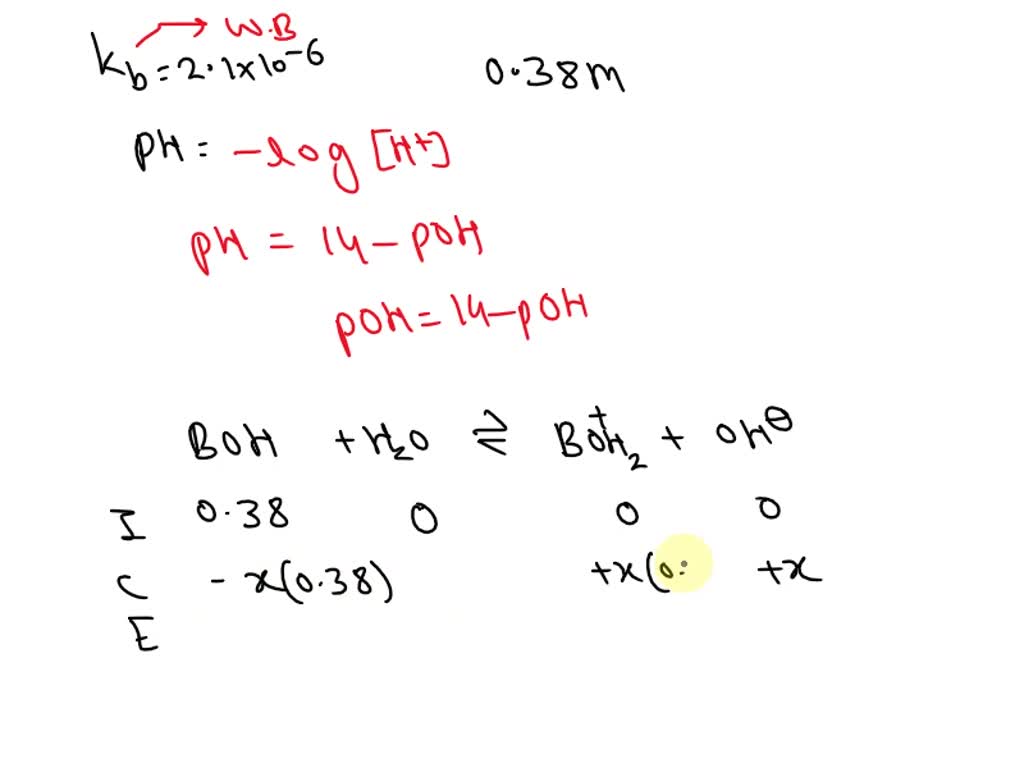 → W.B
kb = 2.1x10⁻⁶ 0.38m
pH = -log [H+]
pH = 14 - pOH
pOH = 14 - pOH
BOH + H₂O ⇌ BOH₂⁺ + OH⊖
I 0.38 0 0 0
C - x(0.38) +x(0. +x
E